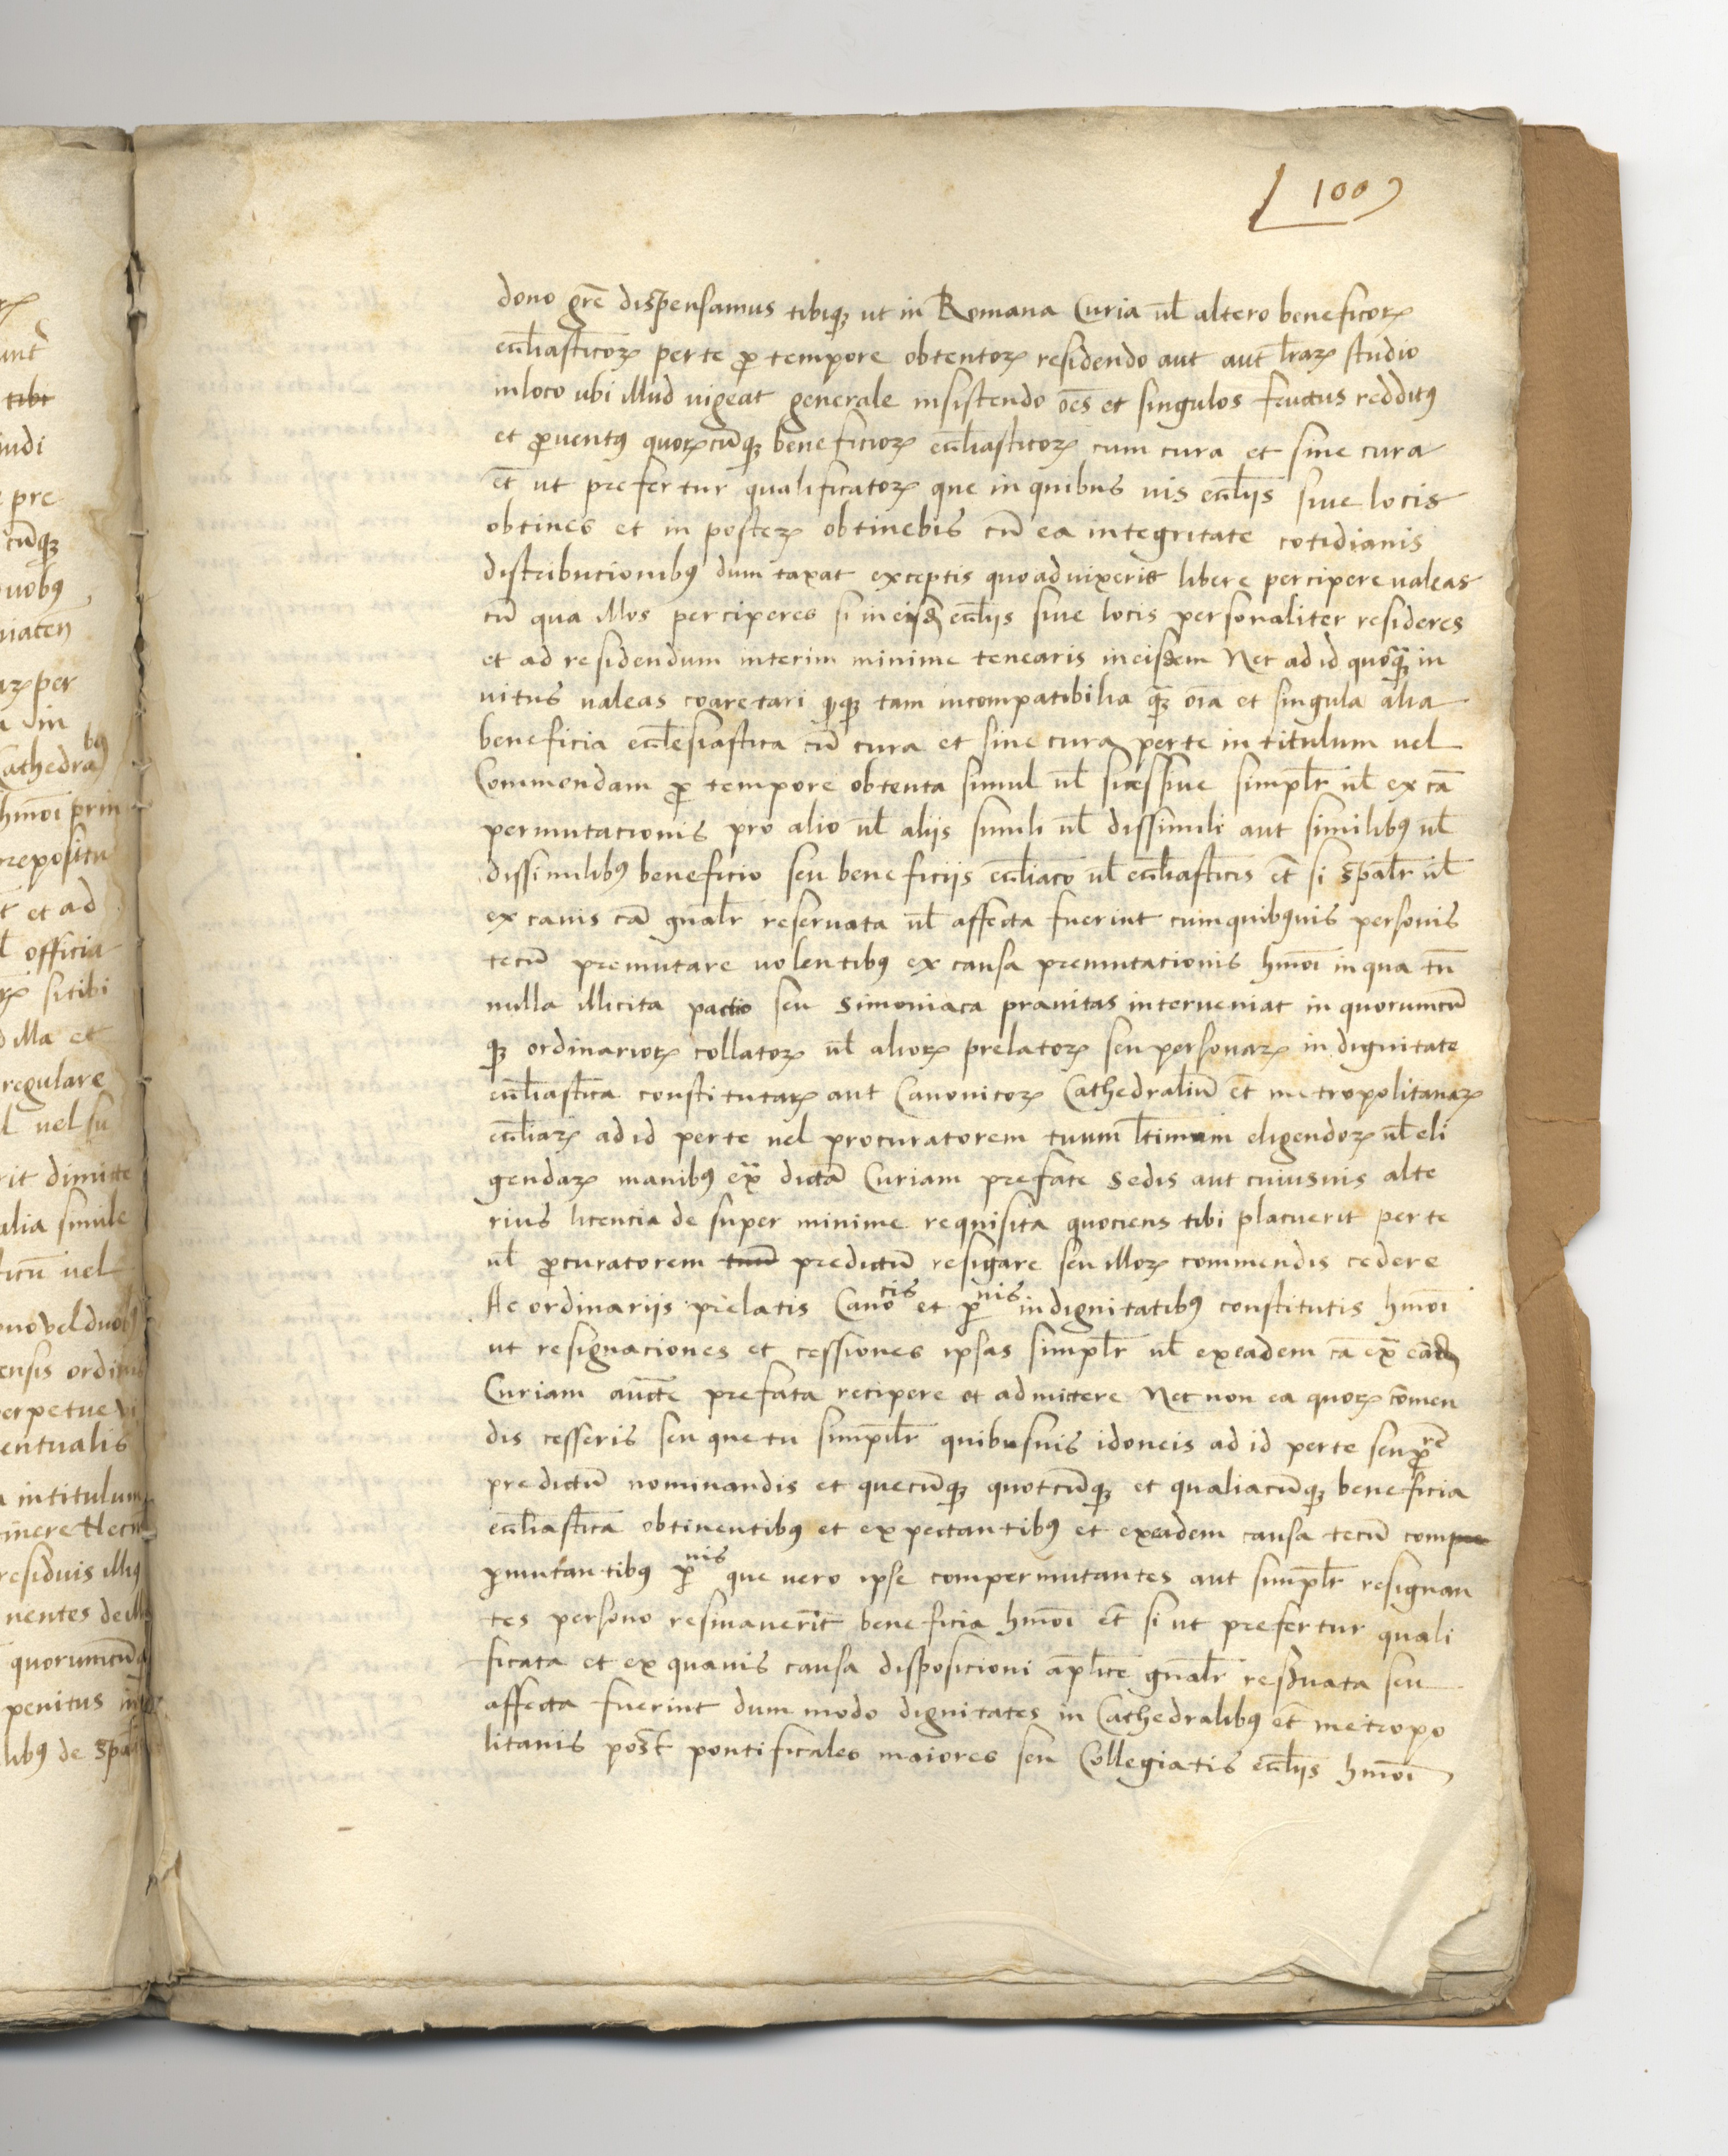 100
dono gre᷒ dispensamus tibiqꝫ ut in Romana Curia ul̄ altero beneficioꝝ
eccl̄iasticoꝝ per te ꝓ tempore obtentoꝝ residendo aut aut lr̄aꝝ studio
in loco ubi illud uigeat generale insistendo oēs et singulos fructus redditꝰ
et ꝓuentꝰ quoꝝcūqꝫ beneficioꝝ eccl̄iasticoꝝ cum cura et sine cura
et̄ ut prefertur qualificatoꝝ que in quibus uis eccl̄iis siue locis
obtines et in posteꝝ obtinebis cū ea integritate cotidianis
distributionibꝰ dum taxat exceptis quoad uixeris libere percipere ualeas
cū qua illos perciperes si in eisd eccl̄iis siue locis personaliter resideres
et ad residendum interim minime tenearis in eisdem Nec ad id quoqꝫ in
uitus ualeas coarctari qꝫ tam incompatibilia qꝫ oīa et singula alia
beneficia ecclesiastica cū cura et sine cura per te in titulum uel
Commendam ꝓ tempore obtenta simul ul̄ sucessiue simpl̄r ul̄ ex cā
permutacionis pro alio ul̄ aliis simili ul̄ dissimili aut similibꝰ ul̄
dissimilibꝰ beneficio seu beneficiis eccl̄iaco ul̄ eccl̄iasticis et̄ si sp̄al̄r ul̄
ex cauis cā gn̄al̄r reseruata ul̄ affecta fuerint cum quibꝰuis personis
tecū premutare uolentibꝰ ex causa premutacionis hmōi in qua tn̄
nulla illicita pactio seu simoniaca prauitas interueniat in quorumcū
qꝫ ordinarioꝝ collatoꝝ ul̄ alioꝝ prelatoꝝ seu personaꝝ in dignitate
eccl̄iastica constitutaꝝ aut Canonicoꝝ Cathedraliū et̄ metropolitanaꝝ
eccl̄iaꝝ ad id per te uel procuratorem tuum l̄timum eligendoꝝ ul̄ eli
gendaꝝ manibꝰ ex̄ dictā Curiam prefate sedis aut cuiusuis alte
rius licencia de super minime requisita quociens tibi placuerit per te
ul̄ ꝓcuratorem tuū predictū resigare seu illoꝝ commendis cedere
Ac ordinariis prelatis Canocis et ꝑnis in dignitatibꝰ constitutis hmōi
ut resignaciones et cessiones ipsas simpl̄r ul̄ ex eadem cā ex̄ eād
Curiam auc̄te prefata recipere et admittere Nec non ea quoꝝ cōmen
dis cesseris seu que tu simpl̄r quibusuis idoneis ad id per te seu ꝓre᷒
predictū nominandis et quecūqꝫ quotcūqꝫ et qualiacūqꝫ beneficia
eccl̄iastica obtinentibꝰ et expectantibꝰ et exeadem causa tecū compre
ꝑmutantibꝰ ꝑnis que uero ipse compermutantes aut simpl̄r resignan
tes persono resinauerīt beneficia hmōi et̄ si ut prefertur quali
ficata et ex quauis causa disposicioni ap̄lice gn̄al̄r resꝰuata seu
affecta fuerint dum modo dignitates in Cathedralibꝰ et̄ metropo
litanis post pontificales maiores seu Collegiatis eccl̄iis hmōi